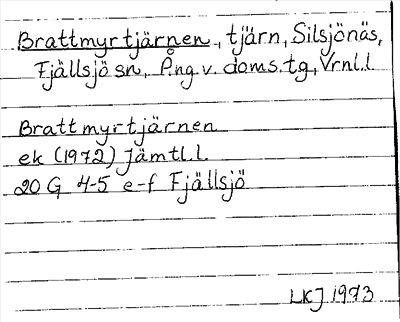 Brattmyrtjärnen, tjärn, Silsjönäs,
Fjällsjö sn, Ång.v. doms.tg, Vrnl.l.
Brattmyrtjärnen
ek (1972) Jämtl.l.
20 G 4-5 e-f Fjällsjö
LKJ 1973